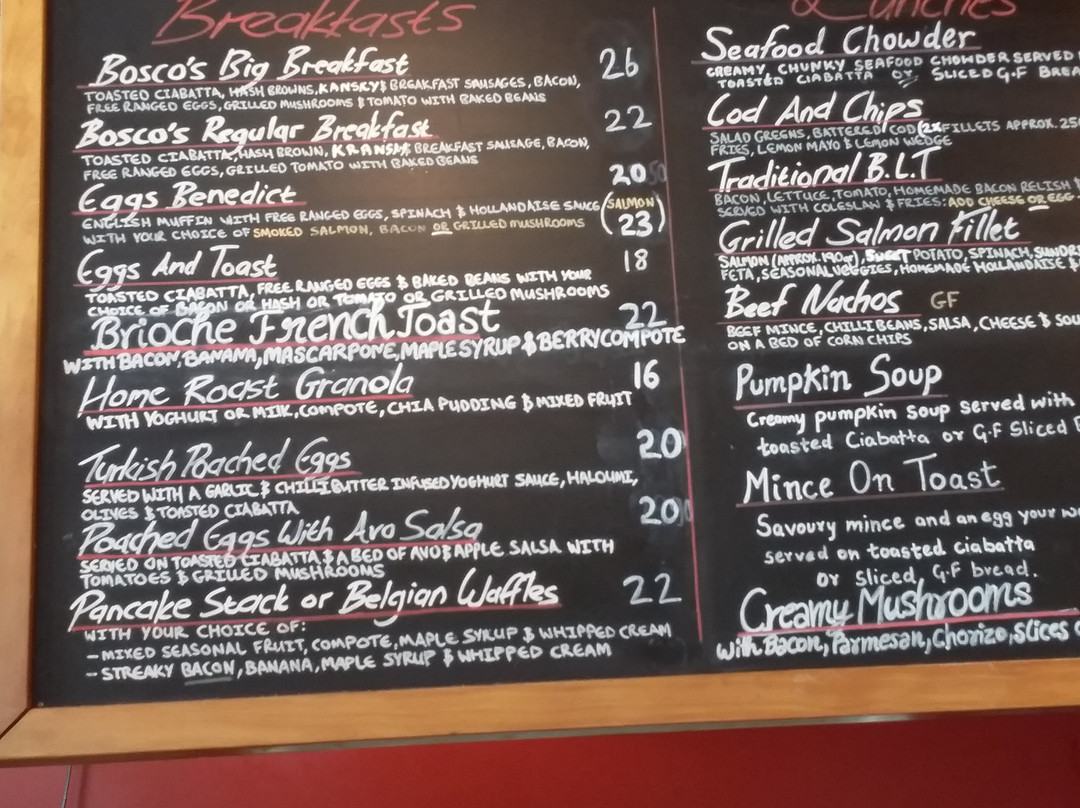 Breakfasts
Bosco's Big Breakfast 26
TOASTED CIABATTA, HASH BROWNS, KANSKYS BREAKFAST SAUSAGES, BACON,
FREE RANGED EGGS, GRILLED MUSHROOMS & TOMATO WITH BAKED BEANS
Bosco's Regular Breakfast 22
TOASTED CIABATTA, HASH BROWN, KRANSKY, BREAKFAST SAUSAGE, BACON,
FREE RANGED EGGS, GRILLED TOMATO WITH BAKED BEANS
Eggs Benedict 20
ENGLISH MUFFIN WITH FREE RANGED EGGS, SPINACH & HOLLANDAISE SAUCE (SALMON
WITH YOUR CHOICE OF SMOKED SALMON, BACON OR GRILLED MUSHROOMS 23)
Eggs And Toast 18
TOASTED CIABATTA, FREE RANGED EGGS & BAKED BEANS WITH YOUR
CHOICE OF BACON OR HASH OR TOMATO OR GRILLED MUSHROOMS
Brioche French Toast 22
WITH BACON, BANANA, MASCARPONE, MAPLE SYRUP & BERRY COMPOTE
Home Roast Granola 16
WITH YOGHURT OR MILK, COMPOTE, CHIA PUDDING & MIXED FRUIT
Turkish Poached Eggs 20
SERVED WITH A GARLIC & CHILLI BUTTER INFUSED YOGHURT SAUCE, HALOUMI,
OLIVES & TOASTED CIABATTA
Poached Eggs With Avo Salsa 20
SERVED ON TOASTED CIABATTA & A BED OF AVO & APPLE SALSA WITH
TOMATOES & GRILLED MUSHROOMS
Pancake Stack or Belgian Waffles 22
WITH YOUR CHOICE OF:
- MIXED SEASONAL FRUIT, COMPOTE, MAPLE SYRUP & WHIPPED CREAM
- STREAKY BACON, BANANA, MAPLE SYRUP & WHIPPED CREAM
Lunches
Seafood Chowder
CREAMY CHUNKY SEAFOOD CHOWDER SERVED
TOASTED CIABATTA OR SLICED G.F BREA
Cod And Chips
SALAD GREENS, BATTERED COD (2x FILLETS APPROX. 25
FRIES, LEMON MAYO & LEMON WEDGE
Traditional B.L.T
BACON, LETTUCE, TOMATO, HOMEMADE BACON RELISH &
SERVED WITH COLESLAW & FRIES: ADD CHEESE OR EGG
Grilled Salmon Fillet
SALMON (APPROX. 190gr), SWEET POTATO, SPINACH, SUNDR
FETA, SEASONAL VEGGIES, HOMEMADE HOLLANDAISE &
Beef Nachos GF
BEEF MINCE, CHILLI BEANS, SALSA, CHEESE & SOU
ON A BED OF CORN CHIPS
Pumpkin Soup
Creamy pumpkin soup served with
toasted Ciabatta or G.F Sliced
Mince On Toast
Savoury mince and an egg your
served on toasted ciabatta
or sliced G.F bread.
Creamy Mushrooms
with Bacon, Parmesan, Chorizo, Slices